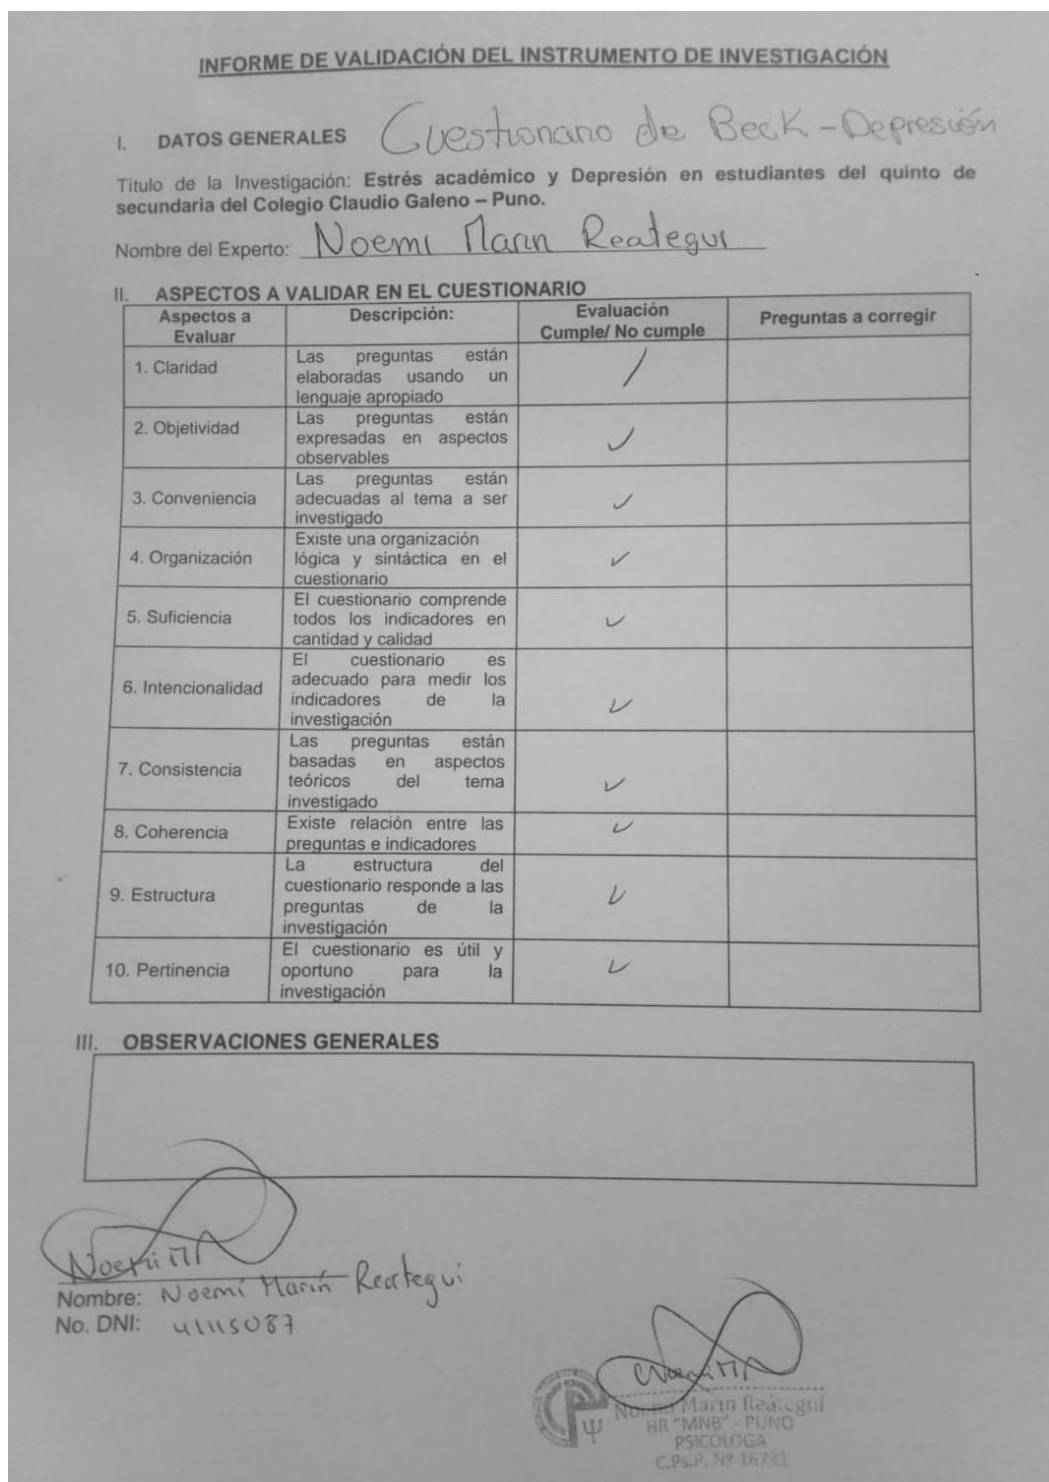 INFORME DE VALIDACIÓN DEL INSTRUMENTO DE INVESTIGACIÓN
I. DATOS GENERALES Cuestionario de Beck - Depresión
Título de la Investigación: Estrés académico y Depresión en estudiantes del quinto de
secundaria del Colegio Claudio Galeno – Puno.
Nombre del Experto: Noemi Marin Reategui
II. ASPECTOS A VALIDAR EN EL CUESTIONARIO
Aspectos a Evaluar Descripción: Evaluación Cumple/ No cumple Preguntas a corregir
1. Claridad
Las preguntas están
elaboradas usando un
lenguaje apropiado
2. Objetividad
Las preguntas están
expresadas en aspectos
observables
3. Conveniencia
Las preguntas están
adecuadas al tema a ser
investigado
4. Organización
Existe una organización
lógica y sintáctica en el
cuestionario
5. Suficiencia
El cuestionario comprende
todos los indicadores en
cantidad y calidad
6. Intencionalidad
El cuestionario es
adecuado para medir los
indicadores de la
investigación
7. Consistencia
Las preguntas están
basadas en aspectos
teóricos del tema
investigado
8. Coherencia
Existe relación entre las
preguntas e indicadores
9. Estructura
La estructura del
cuestionario responde a las
preguntas de la
investigación
10. Pertinencia
El cuestionario es útil y
oportuno para la
investigación
III. OBSERVACIONES GENERALES
Nombre: Noemí Marín Reategui
No. DNI: 41115087
Noemi Marin Reátegui
HR "MNB" - PUNO
PSICOLOGA
C.Ps.P. Nº 16731